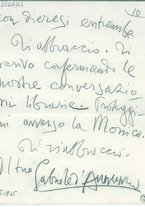 10
con dieresi entrambe.
Ti abbraccio. Ti
scrivo confermando le
nostre conversazio
ni librarie. Proteggi-
mi avverso la Monica.
Ti riabbraccio.
Il tuo
Gabriele d'Annunzio